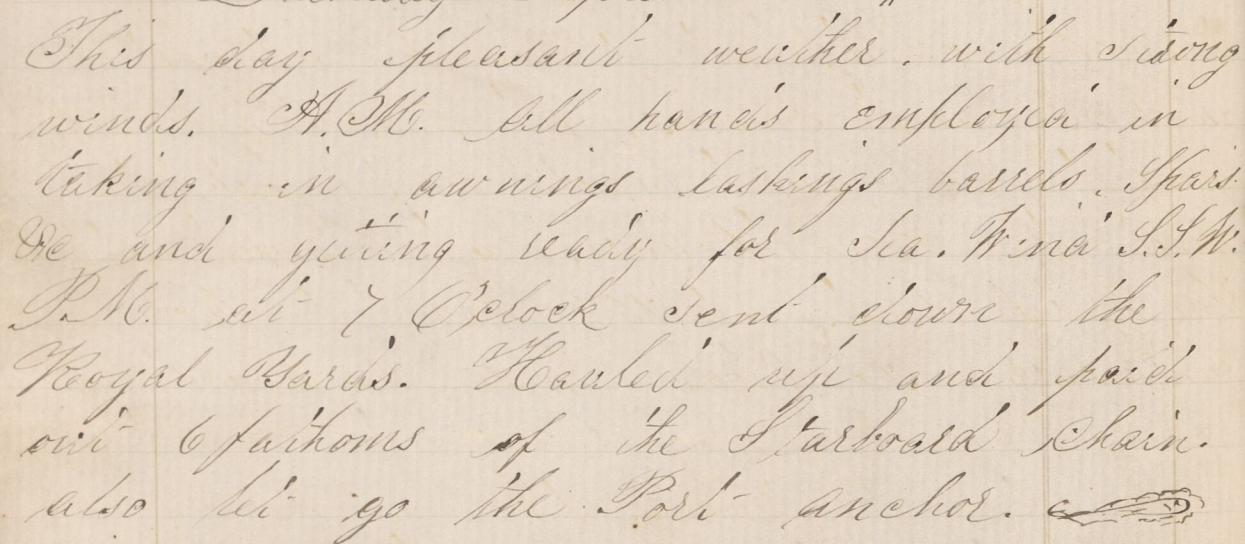 This day pleasant weather. with strong
winds. A.M. All hands employed in
taking in awnings lashings barrels. Spars.
&c and getting ready for Sea. Wind S.S.W.
P.M. at 7 O'clock sent down the
Royal Yards. Hauled up and paid
out 6 fathoms of the Starboard Chain.
also let go the Port anchor.